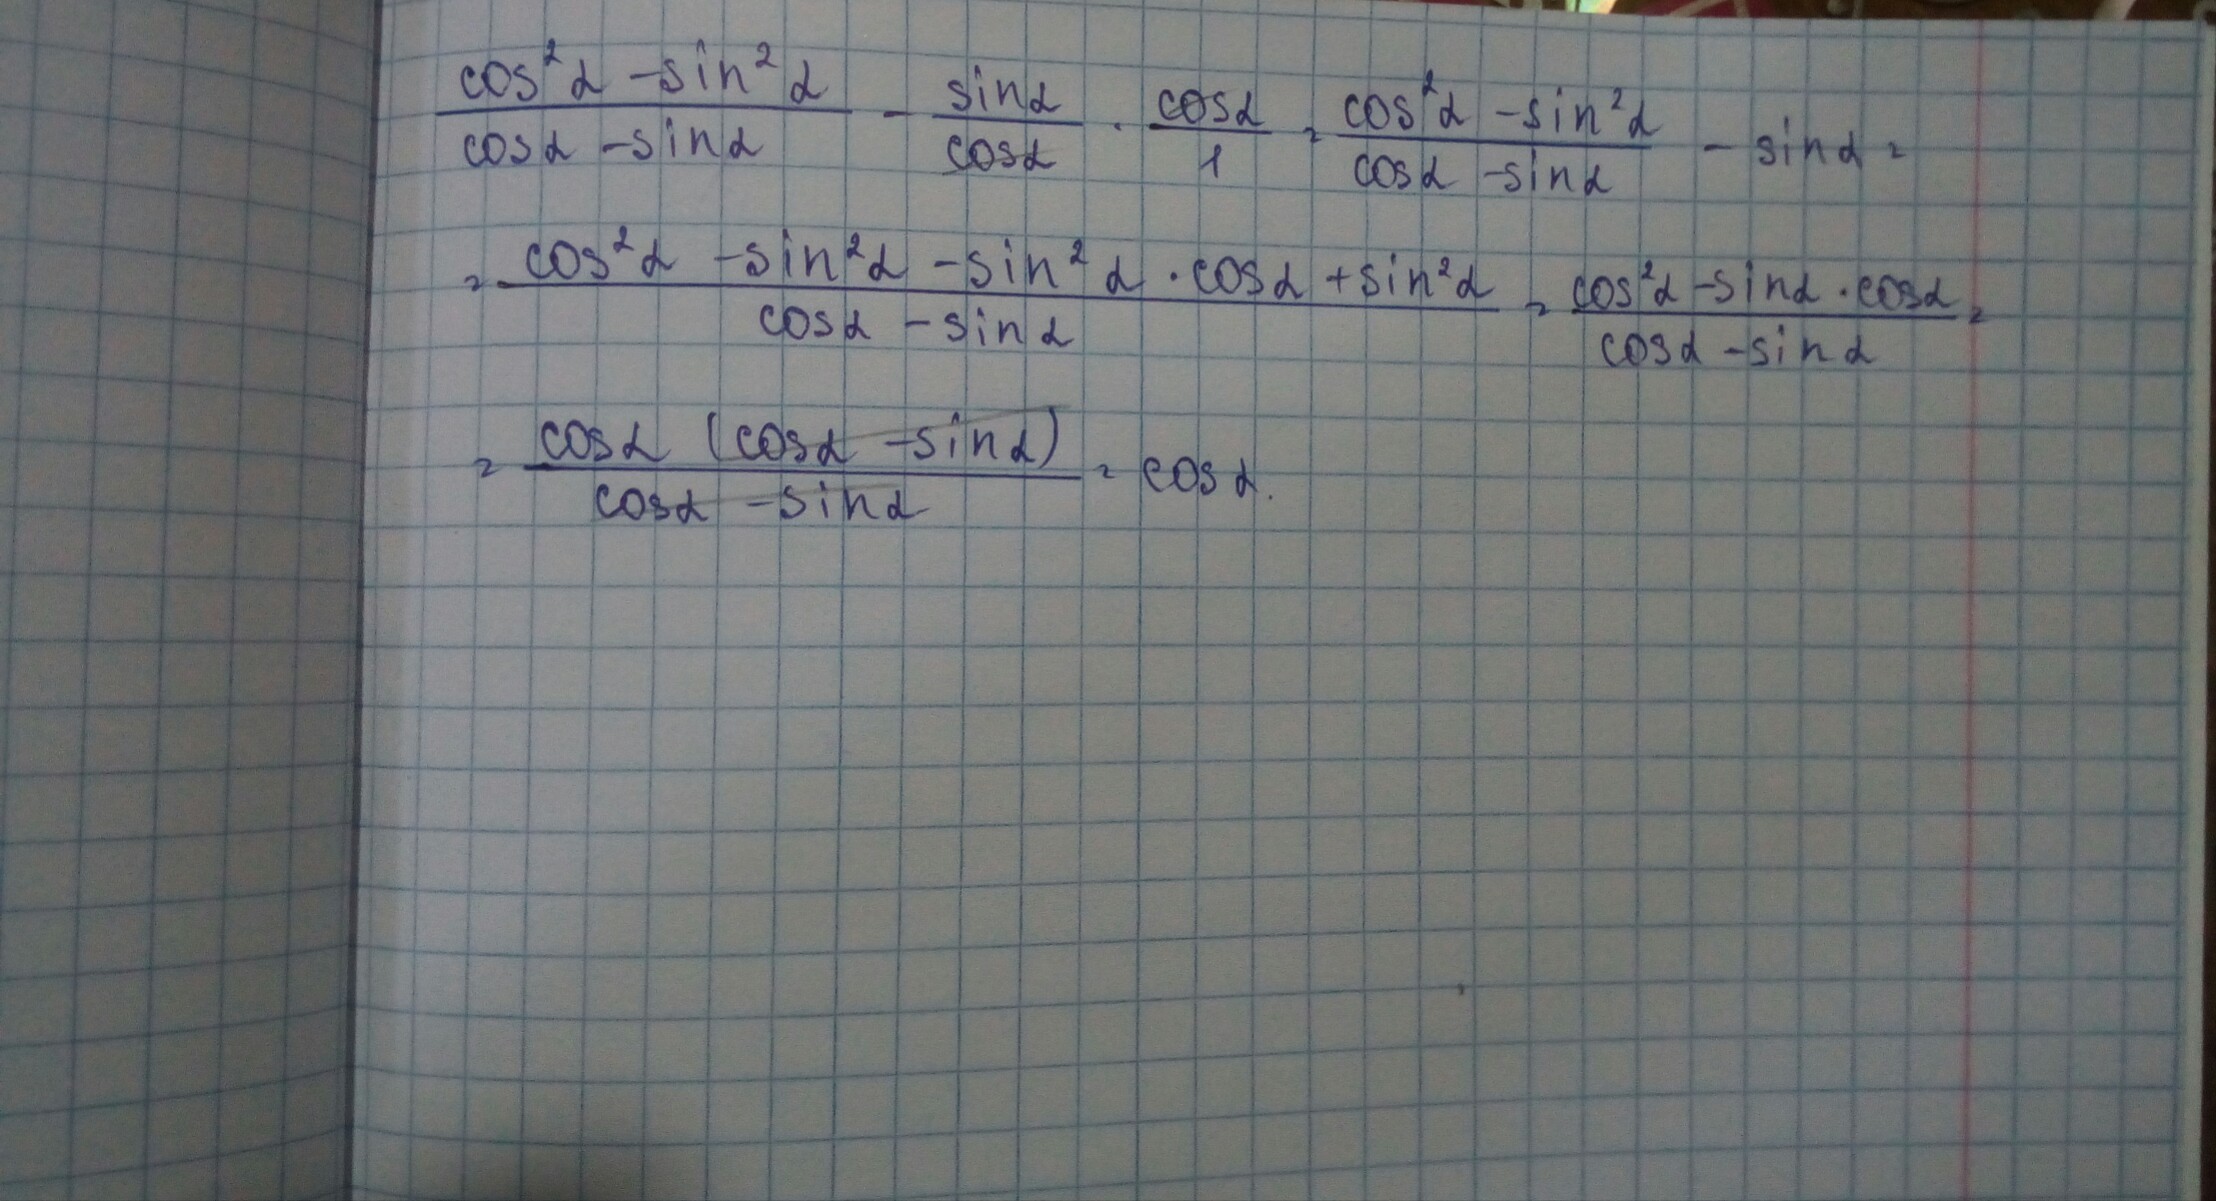 (cos²α - sin²α)/(cosα - sinα) - sinα/cosα · cosα/1 = (cos²α - sin²α)/(cosα - sinα) - sinα =
= (cos²α - sin²α - sin²α · cosα + sin²α)/(cosα - sinα) = (cos²α - sinα · cosα)/(cosα - sinα) =
= (cosα (cosα - sinα))/(cosα - sinα) = cosα.